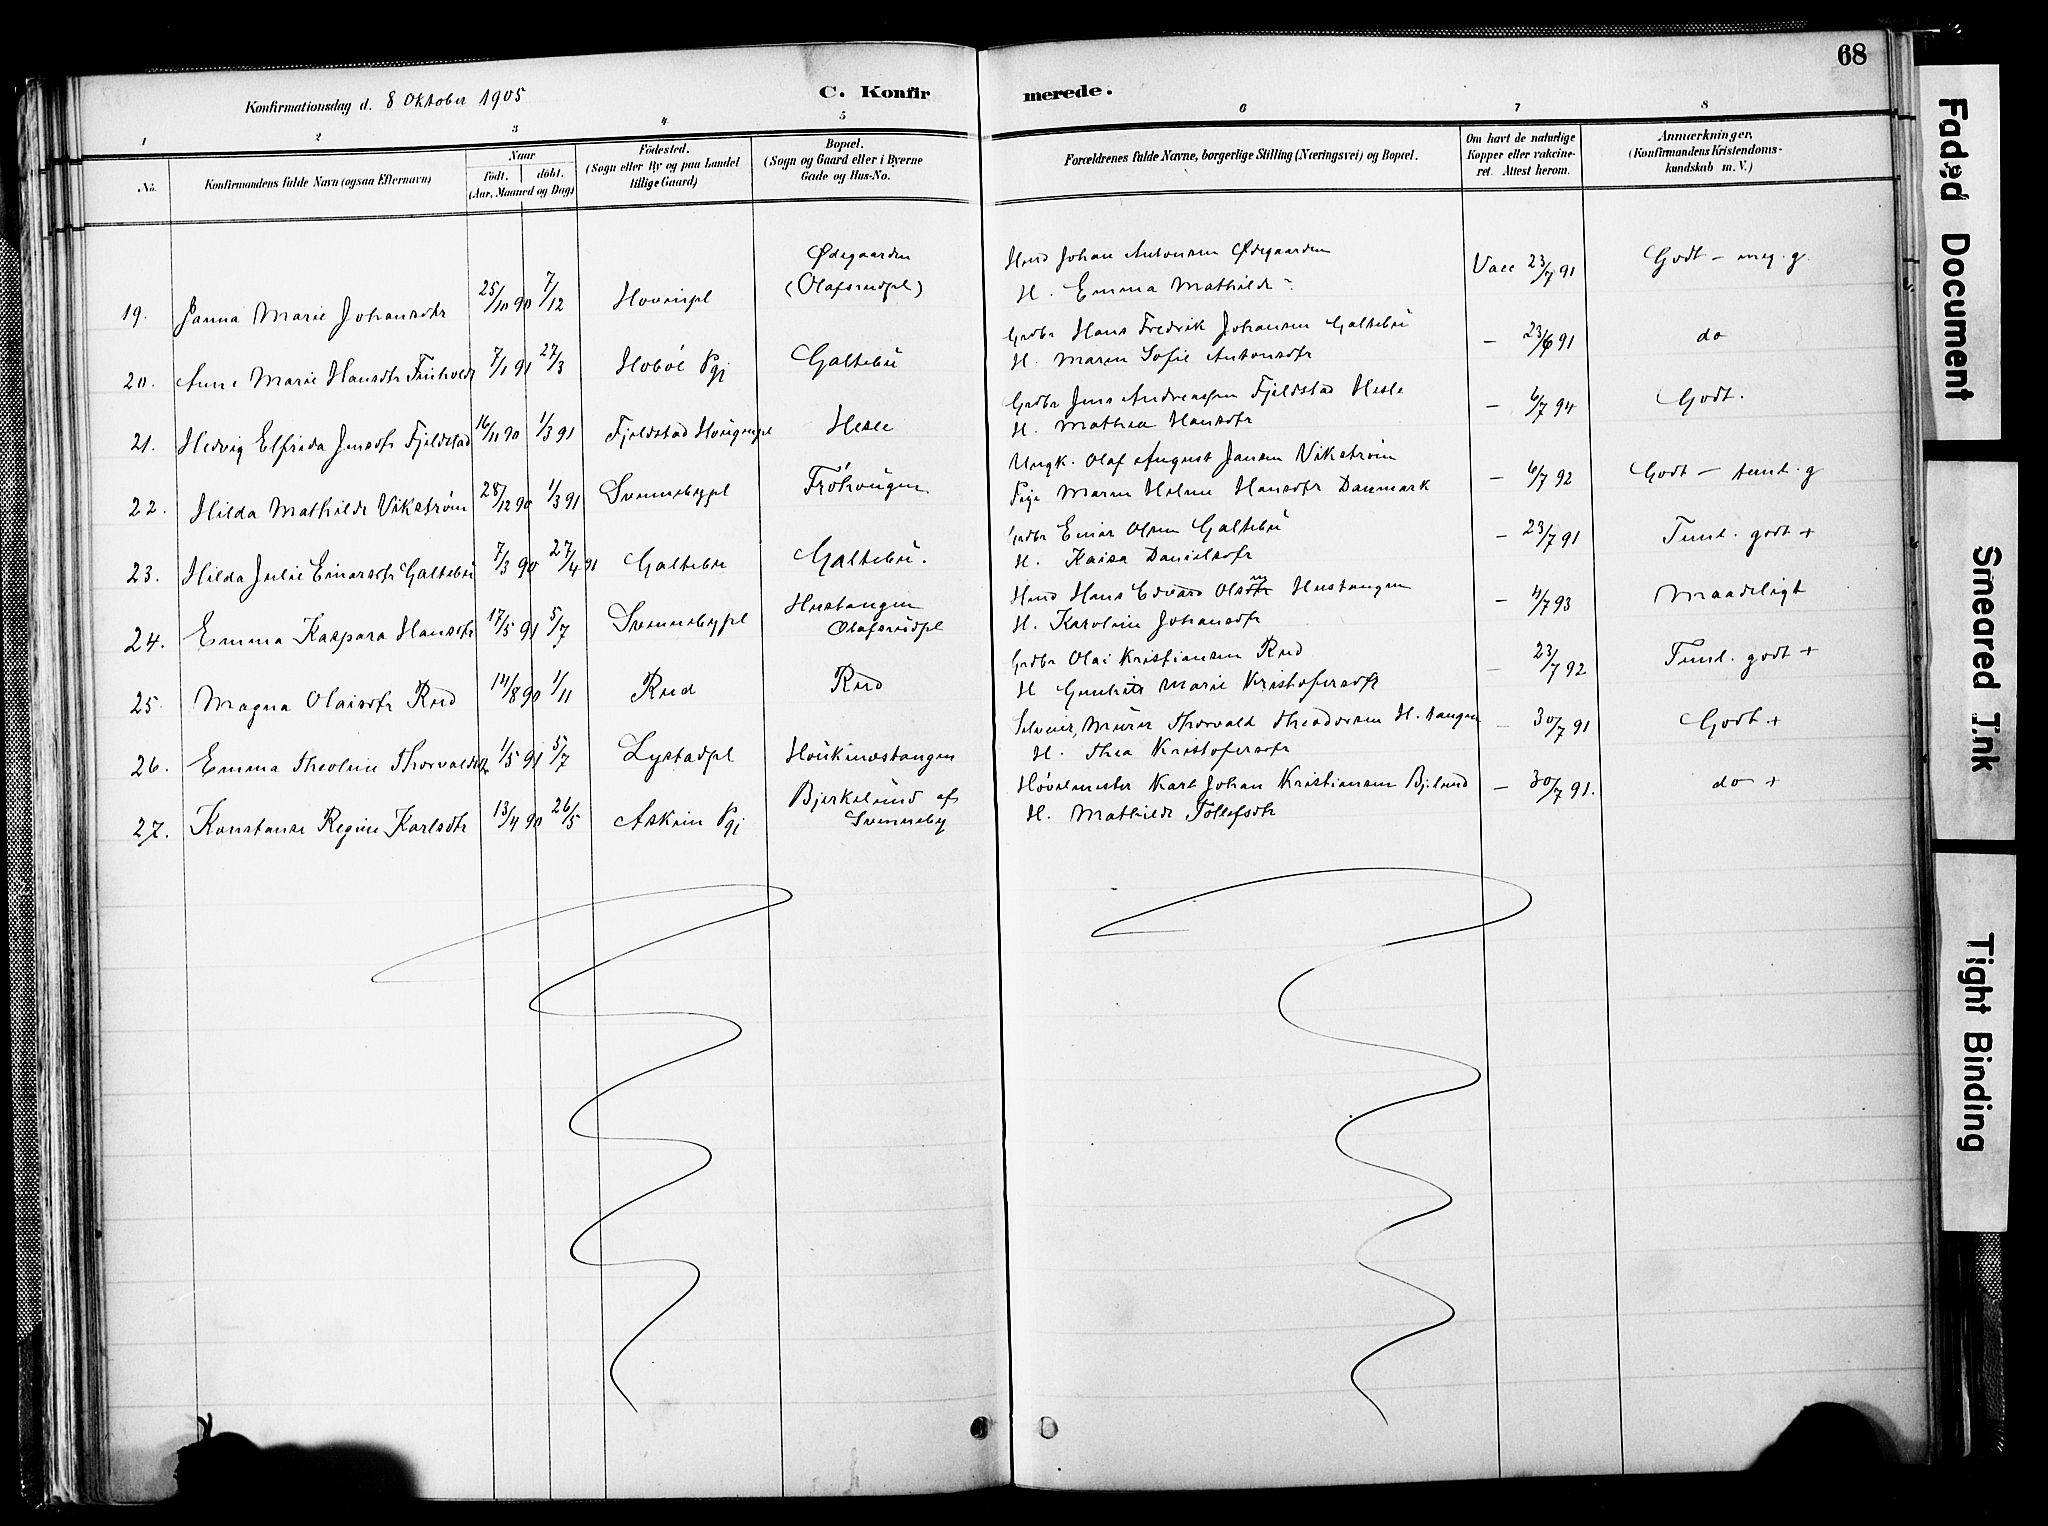 68
Konfirmationsdag d. 8 Oktober 1905
C. Konfir
merede.
1 2 3 4 5 6 7 8
No.
Konfirmandens fulde Navn (ogsaa Efternavn)
Naar
födt. döbt.
(Aar, Maaned og Dag)
Födested.
(Sogn eller By og paa Landet
tillige Gaard)
Bopæl.
(Sogn og Gaard eller i Byerne
Gade og Hus-No.
Forældrenes fulde Navne, borgerlige Stilling (Næringsvei) og Bopæl.
Om havt de naturlige
Kopper eller vakcine-
ret. Attest herom.
Anmærkninger,
(Konfirmandens Kristendoms-
kundskab m. V.)
Ødegaarden Hmd Johan Antonsen Ødegaarden
19. Janna Marie Johansdtr 25/10 90 7/12 Hovinpl (Olafsrudpl) H. Emma Mathilde Vacc 23/7 91 Godt - meg. g.
Grdbr Hans Fredrik Johansen Galtebü
20. Anne Marie Hansdtr 7/1 91 27/3 Hoböl Pgj Galtebü H. Maren Sofie Antonsdtr - 23/6 91 do
Grdbr Jens Andreassen Fjeldstad Hesle
21. Hedvig Elfrida Jensdtr Fjeldstad 16/11 90 1/3 91 Fjeldstad Hesle H. Mathea Hansdtr - 6/7 94 Godt.
Ungk. Olaf August Jansen Vikström
22. Hilda Mathilde Vikström 28/12 90 1/3 91 Svennebypl Fröhaugen Pige Maren Helene Hansdtr Danmark - 6/7 92 Godt - teml. g
Grdbr Einar Olsen Galtebü
23. Hilda Julie Einarsdtr Galtebü 7/3 90 27/4 91 Galtebü Galtebü. H. Kaisa Danielsdtr - 23/7 91 Teml. godt +
Hustangen Hmd Hans Edvard Olsen Hustangen
24. Emma Kaspara Hansdtr 17/5 91 5/7 Svennebypl Olafsrudpl H. Karoline Johansdtr - 4/7 93 Maadeligt
Grdbr Olai Kristiansen Rud
25. Magna Olaisdtr Rud 14/8 90 1/11 Rud Rud H Marie Kristofersdtr - 23/7 92 Teml. godt +
Selveier, Murer Thorvald Theodorsen H. tangen
26. Emma Theoline Thorvaldsdtr 1/5 91 5/7 Lystadpl Haukenestangen H. Thea Kristofersdtr - 30/7 91 Godt +
Bjerkelund af Hövelmester Karl Johan Kristiansen Bj.lund
27. Konstanse Regine Karlsdtr 13/4 90 26/5 Askim Pgj Svenneby H. Mathilde Tollefsdtr - 30/7 91. do +
Faded Document
Smeared Ink
Tight Binding